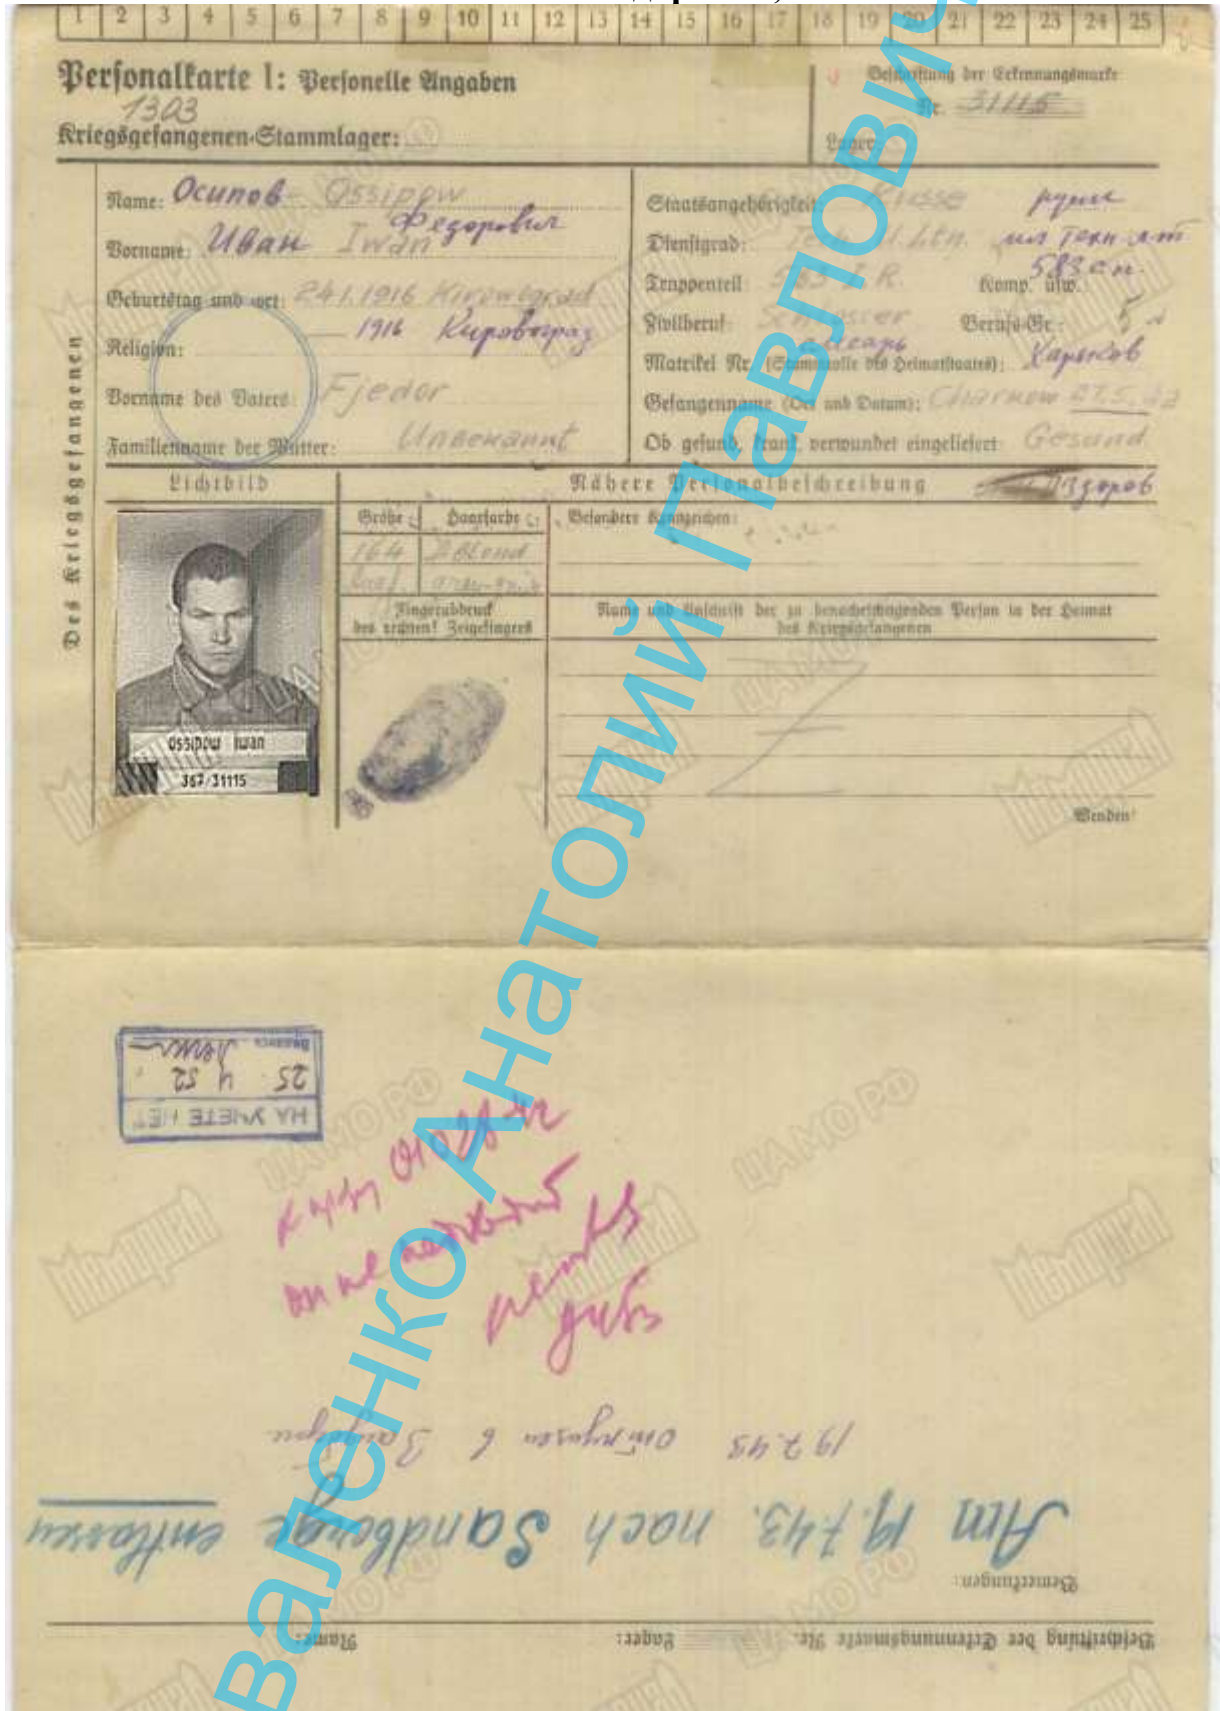 1 2 3 4 5 6 7 8 9 10 11 12 13 14 15 16 17 18 19 20 21 22 23 24 25
Personalkarte I: Personelle Angaben
1303
Kriegsgefangenen-Stammlager:
Beschriftung der Erkennungsmarke
Nr. 31115
Lager:
Des Kriegsgefangenen
Name: Осипов - Ossipow
Федорович
Vorname: Иван Iwan
Geburtstag und -ort: 24.1.1916 Kirowograd
1916 Кировоград
Religion:
Vorname des Vaters: Fjedor
Familienname der Mutter: Unbekannt
Staatsangehörigkeit: Russe
Dienstgrad: мл техн
Truppenteil: 583 I.R. Komp. usw.: 583 сп.
Zivilberuf: Schlosser Berufs-Gr.: 5
слесарь
Matrikel Nr. (Stammrolle des Heimatstaates): Харьков
Gefangennahme (Ort und Datum): Charkow 27.5.42
Ob gesund, krank, verwundet eingeliefert: Gesund
Lichtbild
Nähere Personalbeschreibung здоров
Größe Haarfarbe Besondere Kennzeichen:
164 blond
Fingerabdruck
des rechten! Zeigefingers
Name und Anschrift der zu benachrichtigenden Person in der Heimat
des Kriegsgefangenen
Ossipow Iwan
367/31115
Wenden!
НА УЧЕТЕ НЕТ
25 4 52
он не
19.7.43 Отпущен в
Am 19.7.43. nach Sandberge entlassen
Bemerkungen:
Beschriftung der Erkennungsmarke Nr. Lager: Name:
Валенко Анатолий Павлович
Мемориал
ЦАМО РФ